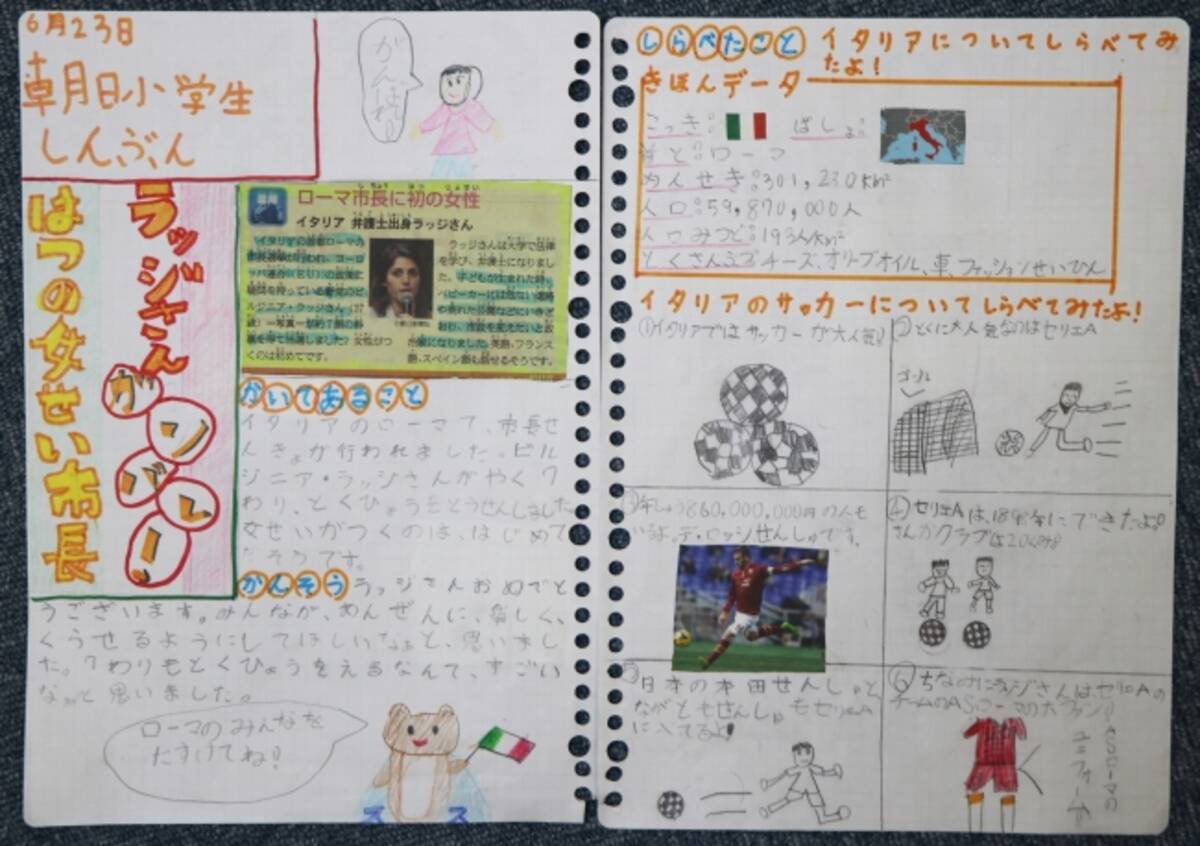 6月23日
朝日小学生
しんぶん
がんばれ!
ラッジさん
ガンバレー
はつの女せい市長
ローマ市長に初の女性
イタリア 弁護士出身ラッジさん
ラッジさんは大学で法律
を学び、弁護士になりまし
くのは初めてです。
た。英語、フランス
語、スペイン語も話せるそうです。
かいてあること
イタリアのローマで、市長せ
んきょが行われました。ビル
ジニア・ラッジさんがやく7
わり、とくひょうをとうせんしました
女せいがつくのは、はじめて
だそうです。
かんそう ラッジさんおめでと
うございます。みんなが、あんぜんに、楽しく、
くらせるようにしてほしいなぁと、思いまし
た。7わりもとくひょうをえるなんて、すごい
なぁと思いました。
ローマのみんなを
たすけてね!
しらべたこと イタリアについてしらべてみ
たよ!
きほんデータ
こっき: ばしょ:
しゅと:ローマ
めんせき:301,230km²
人口:59,870,000人
人口みつど:193人/km²
とくさんぶつ:チーズ、オリーブオイル、車、ファッションせいひん
イタリアのサッカーについてしらべてみたよ!
①イタリアではサッカーが大人気!
②とくに大人気なのはセリエA
ゴール
③年しゅう860,000,000円の人も
いるよ。デ・ロッシせんしゅです。
④セリエAは、1898年にできたよ!
さんかクラブは20くみ!
⑤日本の本田せんしゅと
ながともせんしゅもセリエA
に入ってるよ!
⑥ちなみにラッジさんはセリエAの
チームのASローマの大ファン!
ASローマの
ユニフォーム